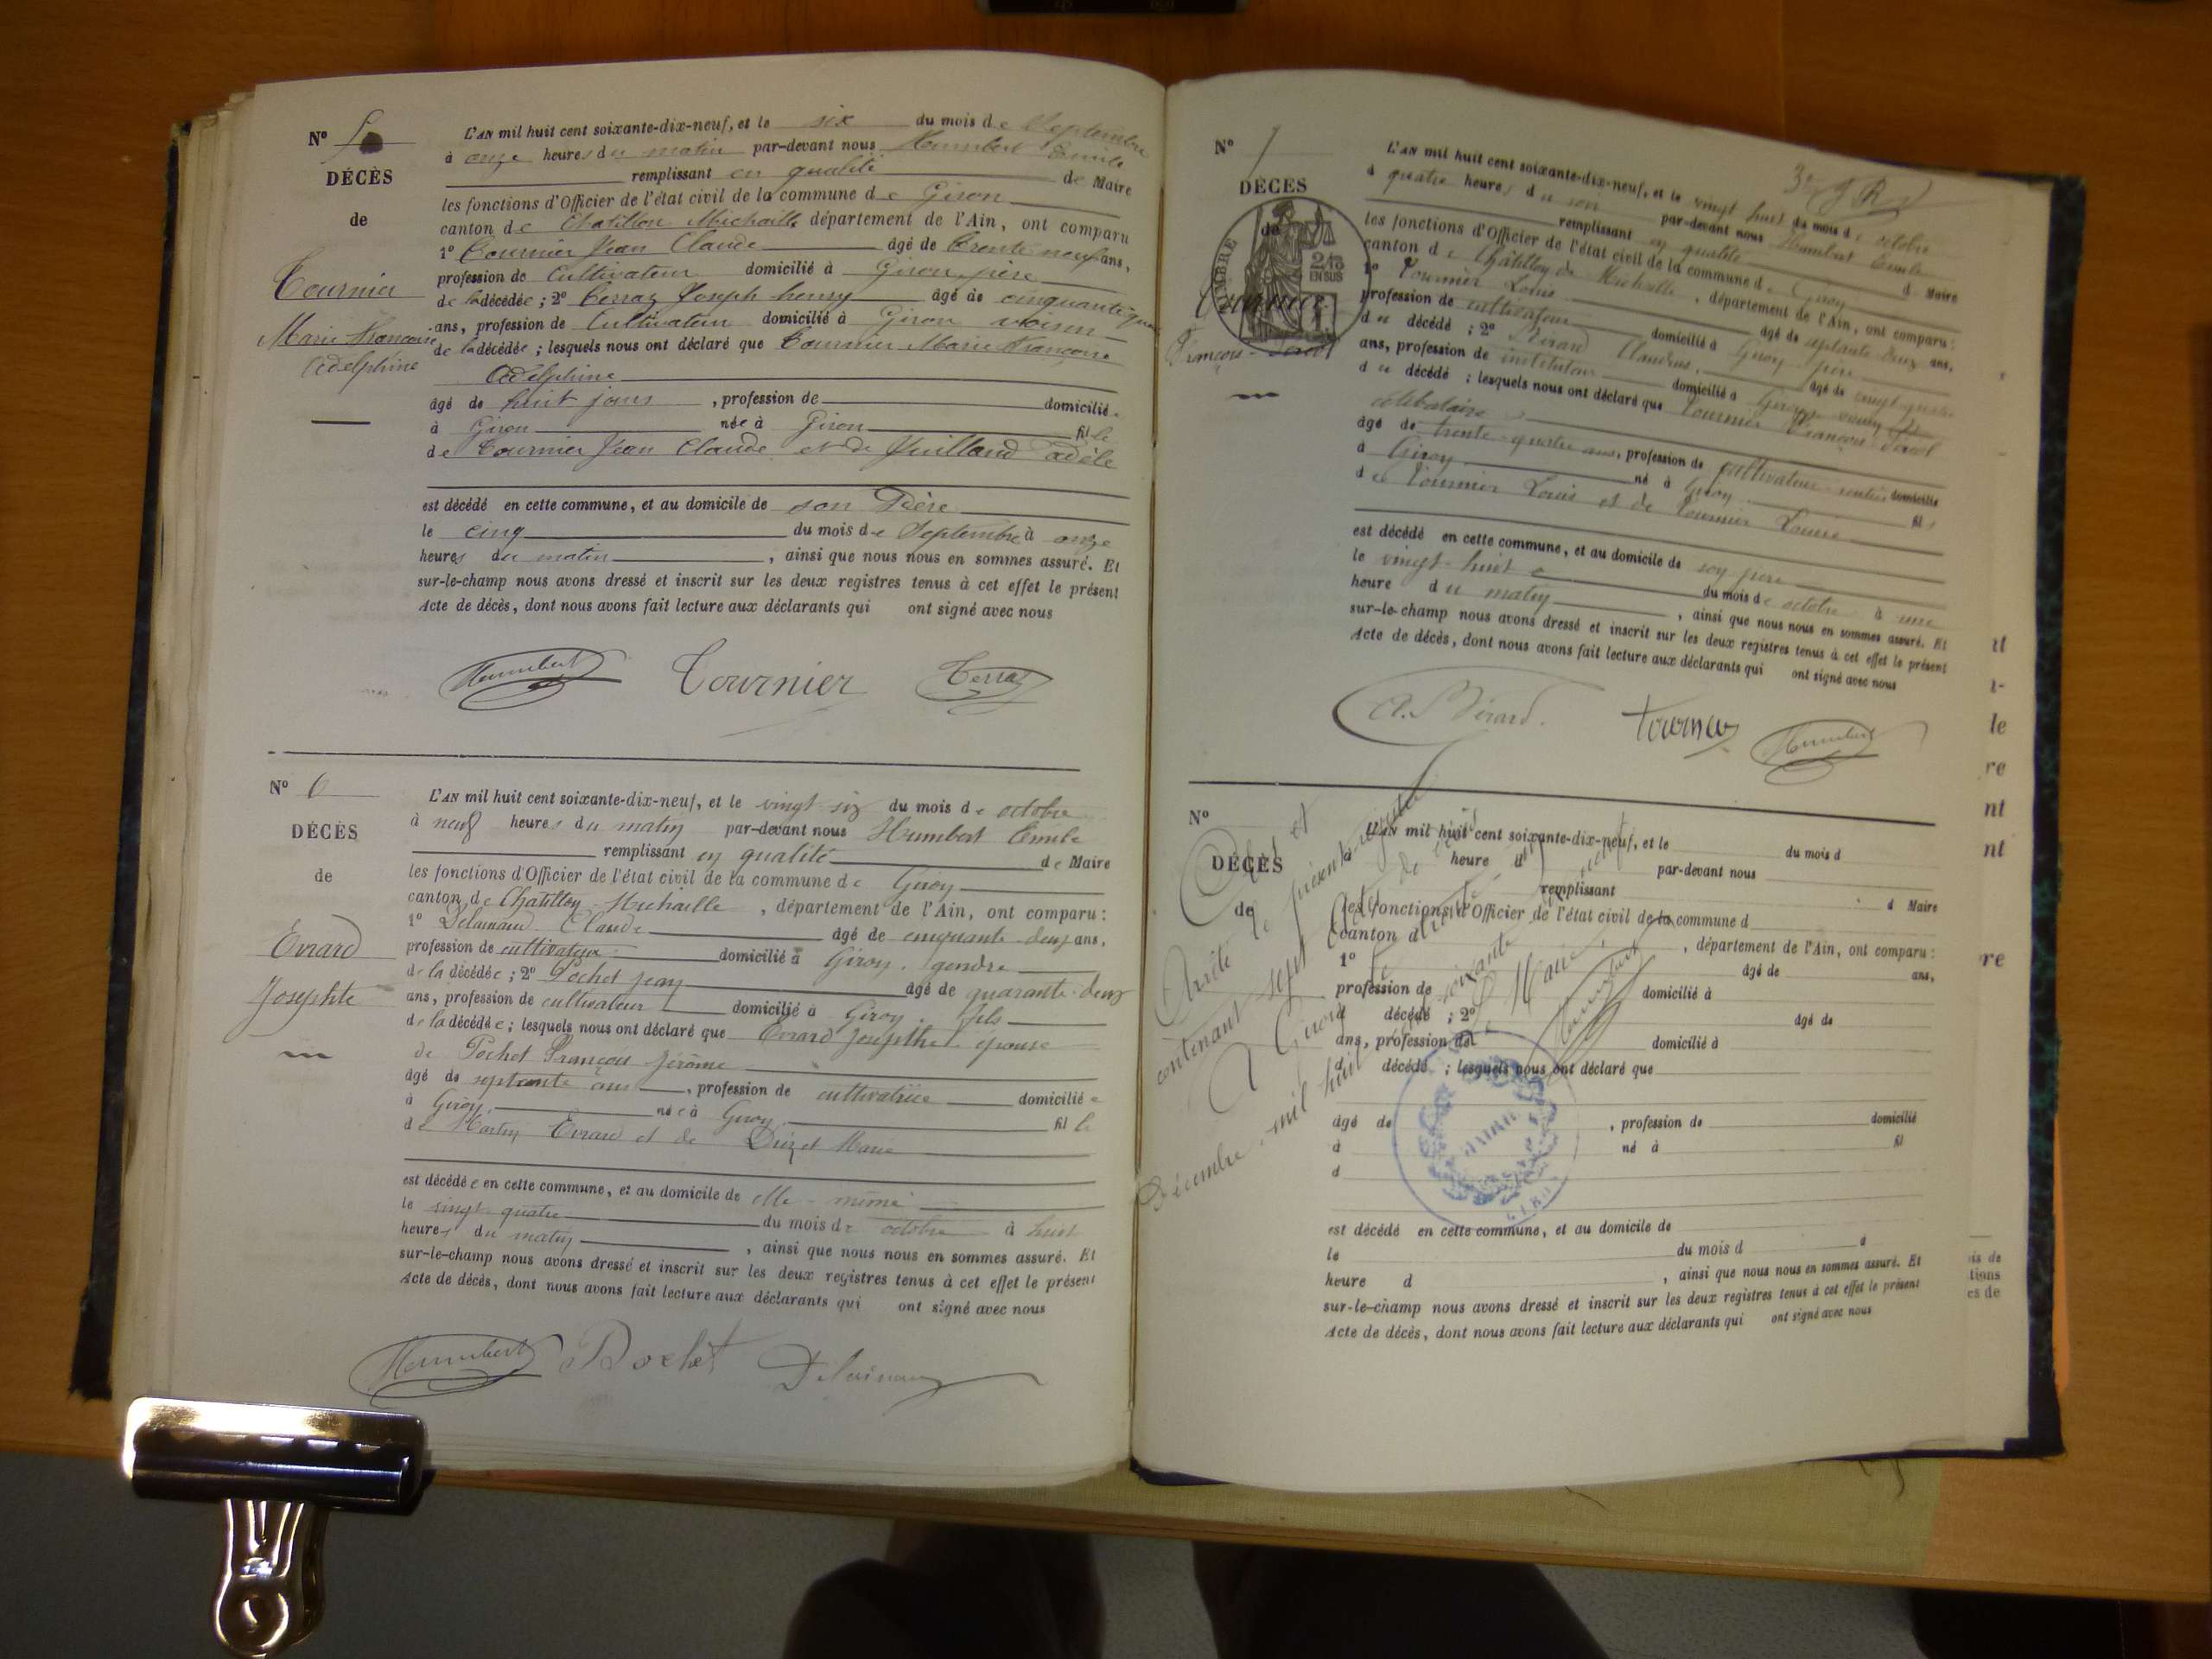 N° 5
DÉCÈS
de
Tournier
Marie Françoise
Adelphine
L'AN mil huit cent soixante-dix-neuf, et le six du mois de Septembre
à onze heures du matin par-devant nous Humbert Emile
remplissant en qualité de Maire
les fonctions d'Officier de l'état civil de la commune de Giron
canton de Chatillon Michaille, département de l'Ain, ont comparu
1° Tournier Jean Claude âgé de trente neuf ans,
profession de Cultivateur domicilié à Giron, père
de la décédée ; 2° Terraz Joseph henry âgé de cinquante
ans, profession de Cultivateur domicilié à Giron voisin
de la décédée ; lesquels nous ont déclaré que Tournier Marie Françoise
Adelphine
âgé de huit jours , profession de domicilié
à Giron née à Giron fille
de Tournier Jean Claude et de Juilland adèle
est décédé en cette commune, et au domicile de son Père
le cinq du mois de Septembre à onze
heures du matin , ainsi que nous nous en sommes assuré. Et
sur-le-champ nous avons dressé et inscrit sur les deux registres tenus à cet effet le présent
Acte de décès, dont nous avons fait lecture aux déclarants qui ont signé avec nous
Humbert Tournier Terraz
N° 6
DÉCÈS
de
Evrard
Josephte
L'AN mil huit cent soixante-dix-neuf, et le vingt six du mois de octobre
à neuf heures du matin par-devant nous Humbert Emile
remplissant en qualité de Maire
les fonctions d'Officier de l'état civil de la commune de Giron
canton de Chatillon Michaille , département de l'Ain, ont comparu :
1° Delainaud Claude âgé de cinquante-deux ans,
profession de cultivateur domicilié à Giron, gendre
de la décédée ; 2° Pochet jean âgé de quarante-deux
ans, profession de cultivateur domicilié à Giron, fils
de la décédée ; lesquels nous ont déclaré que Evrard Josepthe épouse
de Pochet François Jérôme
âgé de septante ans , profession de cultivatrice domiciliée
à Giron née à Giron fille
de Martin Evrard et de Duzet Marie
est décédée en cette commune, et au domicile de elle-même
le vingt quatre du mois de octobre à huit
heures du matin , ainsi que nous nous en sommes assuré. Et
sur-le-champ nous avons dressé et inscrit sur les deux registres tenus à cet effet le présent
Acte de décès, dont nous avons fait lecture aux déclarants qui ont signé avec nous
Humbert Pochet Delainaud
N° 7
DÉCÈS
de
TIMBRE
2/10 EN SUS
Tournier
François-
L'AN mil huit cent soixante-dix-neuf, et le vingt huit du mois de octobre
à quatre heures du soir par-devant nous Humbert Emile
remplissant en qualité de Maire
les fonctions d'Officier de l'état civil de la commune de Giron
canton de Châtillon de Michaille , département de l'Ain, ont comparu :
1° Tournier Louis âgé de septante-deux ans,
profession de cultivateur domicilié à Giron père
du décédé ; 2° Bérard Claudius, âgé de vingt-quatre
ans, profession de instituteur domicilié à Giron voisin
du décédé ; lesquels nous ont déclaré que Tournier François
célibataire
âgé de trente-quatre ans, profession de cultivateur-rentier domicilié
à Giron né à Giron fils
de Tournier Louis et de Tournier Louise
est décédé en cette commune, et au domicile de son père
le vingt-huit du mois de octobre à une
heure du matin , ainsi que nous nous en sommes assuré. Et
sur-le-champ nous avons dressé et inscrit sur les deux registres tenus à cet effet le présent
Acte de décès, dont nous avons fait lecture aux déclarants qui ont signé avec nous
Bérard. Tournier Humbert
N°
DÉCÈS
de
L'AN mil huit cent soixante-dix-neuf, et le du mois d
heure d par-devant nous
remplissant d Maire
les fonctions d'Officier de l'état civil de la commune d
canton d , département de l'Ain, ont comparu :
1° âgé de ans,
profession de domicilié à
d décédé ; 2° âgé de
ans, profession de domicilié à
d décédé ; lesquels nous ont déclaré que
âgé de , profession de domicilié
à né à fil
d
est décédé en cette commune, et au domicile de
le du mois d à
heure d , ainsi que nous nous en sommes assuré. Et
sur-le-champ nous avons dressé et inscrit sur les deux registres tenus à cet effet le présent
Acte de décès, dont nous avons fait lecture aux déclarants qui ont signé avec nous
Clos et
Arrêté le présent registre
contenant sept
A Giron
Décembre mil huit cent soixante
Le Maire,
MAIRIE